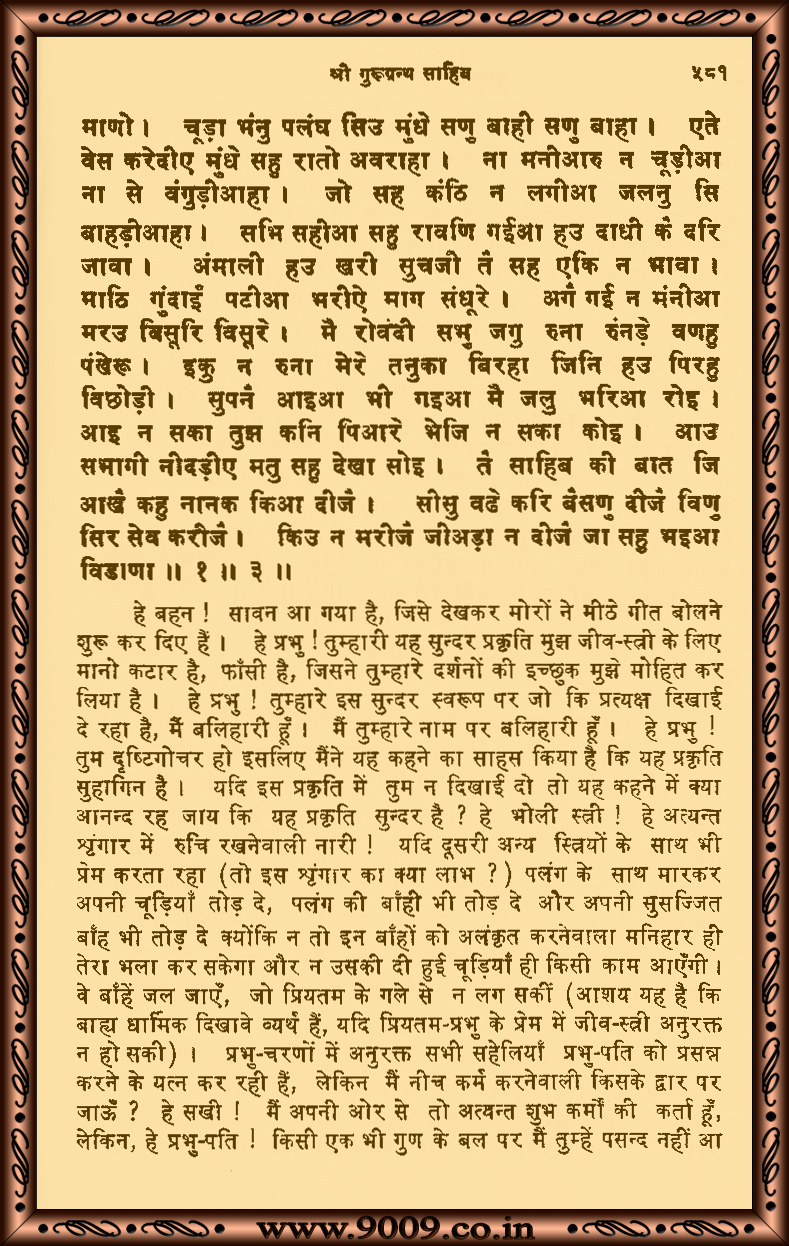 श्री गुरूग्रन्थ साहिब ५८१
माणो। चूड़ा भंनु पलंघ सिउ मुंधे सणु बाही सणु बाहा। एते
वेस करेदीए मुंधे सहु रातो अवराहा। ना मनीआरु न चूड़ीआ
ना से वंगुड़ीआहा। जो सह कंठि न लगीआ जलनु सि
बाहड़ीआहा। सभि सहीआ सहु रावणि गईआ हउ दाधी कै दरि
जावा। अंमाली हउ खरी सुचजी तै सह एकि न भावा।
माठि गुंदाईं पटीआ भरीऐ माग संधूरे। अगै गई न मंनीआ
मरउ विसूरि विसूरे। मै रोवंदी सभु जगु रुना रुंनड़े वणहु
पंखेरू। इकु न रुना मेरे तनुका बिरहा जिनि हउ पिरहु
विछोड़ी। सुपनै आइआ भी गइआ मै जलु भरिआ रोइ।
आइ न सका तुझ कनि पिआरे भेजि न सका कोइ। आउ
सभागी नीदड़ीए मतु सहु देखा सोइ। तै साहिब की बात जि
आखै कहु नानक किआ दीजै। सीसु वढे करि बैसणु दीजै विणु
सिर सेव करीजै। किउ न मरीजै जीअड़ा न दीजै जा सहु भइआ
विडाणा ॥ १ ॥ ३ ॥
हे बहन ! सावन आ गया है, जिसे देखकर मोरों ने मीठे गीत बोलने
शुरू कर दिए हैं। हे प्रभु ! तुम्हारी यह सुन्दर प्रकृति मुझ जीव-स्त्री के लिए
मानो कटार है, फाँसी है, जिसने तुम्हारे दर्शनों की इच्छुक मुझे मोहित कर
लिया है। हे प्रभु ! तुम्हारे इस सुन्दर स्वरूप पर जो कि प्रत्यक्ष दिखाई
दे रहा है, मैं बलिहारी हूँ। मैं तुम्हारे नाम पर बलिहारी हूँ। हे प्रभु !
तुम दृष्टिगोचर हो इसलिए मैंने यह कहने का साहस किया है कि यह प्रकृति
सुहागिन है। यदि इस प्रकृति में तुम न दिखाई दो तो यह कहने में क्या
आनन्द रह जाय कि यह प्रकृति सुन्दर है ? हे भोली स्त्री ! हे अत्यन्त
शृंगार में रुचि रखनेवाली नारी ! यदि दूसरी अन्य स्त्रियों के साथ भी
प्रेम करता रहा (तो इस शृंगार का क्या लाभ ?) पलंग के साथ मारकर
अपनी चूड़ियाँ तोड़ दे, पलंग की बाँही भी तोड़ दे और अपनी सुसज्जित
बाँह भी तोड़ दे क्योंकि न तो इन बाँहों को अलंकृत करनेवाला मनिहार ही
तेरा भला कर सकेगा और न उसकी दी हुई चूड़ियाँ ही किसी काम आएँगी।
वे बाँहें जल जाएँ, जो प्रियतम के गले से न लग सकीं (आशय यह है कि
बाह्य धार्मिक दिखावे व्यर्थ हैं, यदि प्रियतम-प्रभु के प्रेम में जीव-स्त्री अनुरक्त
न हो सकी)। प्रभु-चरणों में अनुरक्त सभी सहेलियाँ प्रभु-पति को प्रसन्न
करने के यत्न कर रही हैं, लेकिन मैं नीच कर्म करनेवाली किसके द्वार पर
जाऊँ ? हे सखी ! मैं अपनी ओर से तो अत्यन्त शुभ कर्मों की कर्ता हूँ,
लेकिन, हे प्रभु-पति ! किसी एक भी गुण के बल पर मैं तुम्हें पसन्द नहीं आ
www.9009.co.in